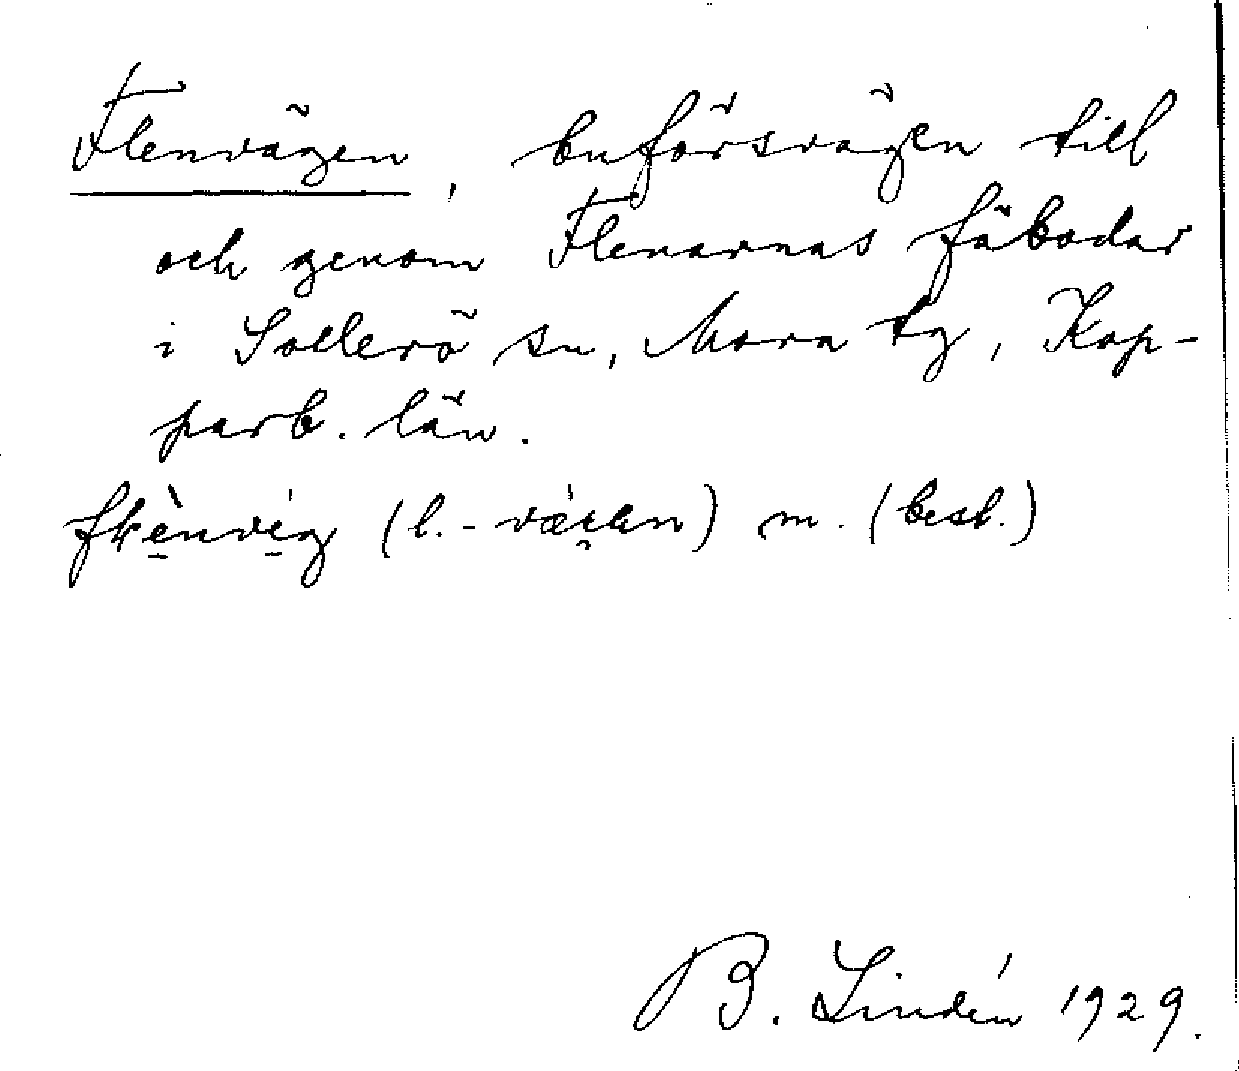 Flenvägen, buförsvägen till
och genom Flenarnas fäbodar
i Sollerö sn, Mora tg, Kop-
parb. län.
(l. -) m. (best.)
B. Lindén 1929.